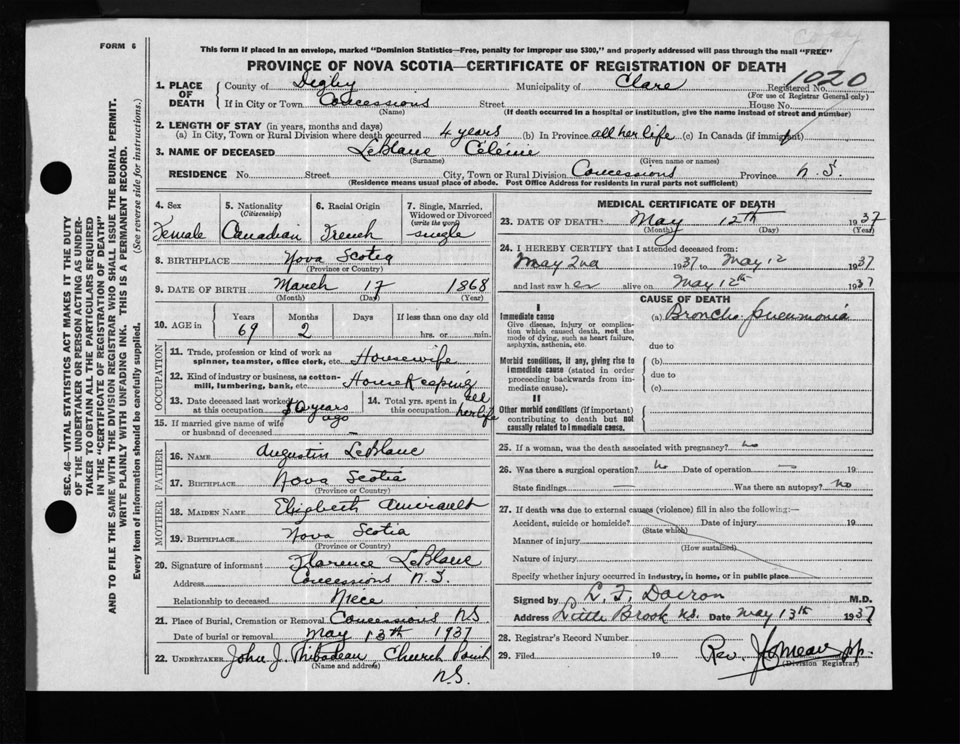 FORM 6
This form if placed in an envelope, marked "Dominion Statistics—Free, penalty for improper use $300," and properly addressed will pass through the mail "FREE"
PROVINCE OF NOVA SCOTIA—CERTIFICATE OF REGISTRATION OF DEATH
1020
1. PLACE OF DEATH
County of Digby Municipality of Clare Registered No.
(For use of Registrar General only)
If in City or Town Concessions Street House No.
(Name) (If death occurred in a hospital or institution, give the name instead of street and number)
2. LENGTH OF STAY (in years, months and days)
(a) In City, Town or Rural Division where death occurred 4 years (b) In Province all her life (c) In Canada (if immigrant)
3. NAME OF DECEASED LeBlanc Célénie
(Surname) (Given name or names)
RESIDENCE No. Street City, Town or Rural Division Concessions Province N.S.
(Residence means usual place of abode. Post Office Address for residents in rural parts not sufficient)
4. Sex Female
5. Nationality (Citizenship) Canadian
6. Racial Origin French
7. Single, Married, Widowed or Divorced (write the word) single
8. BIRTHPLACE Nova Scotia
(Province or Country)
9. DATE OF BIRTH March 17 1868
(Month) (Day) (Year)
10. AGE in Years 69 Months 2 Days If less than one day old hrs. or min.
OCCUPATION
11. Trade, profession or kind of work as spinner, teamster, office clerk, etc. Housewife
12. Kind of industry or business, as cotton-mill, lumbering, bank, etc. HouseKeeping
13. Date deceased last worked at this occupation years ago
14. Total yrs. spent in this occupation all her life
15. If married give name of wife or husband of deceased —
FATHER
16. NAME Augustin LeBlanc
17. BIRTHPLACE Nova Scotia
(Province or Country)
MOTHER
18. MAIDEN NAME Elizabeth Amirault
19. BIRTHPLACE Nova Scotia
(Province or Country)
20. Signature of informant Florence LeBlanc
Address Concessions N.S.
Relationship to deceased Niece
21. Place of Burial, Cremation or Removal Concessions NS
Date of burial or removal May 13th 1937
22. UNDERTAKER John J. Thibodeau Church Point N.S.
(Name and address)
MEDICAL CERTIFICATE OF DEATH
23. DATE OF DEATH May 12th 1937
(Month) (Day) (Year)
24. I HEREBY CERTIFY that I attended deceased from:
May 2nd 1937 to May 12 1937
and last saw her alive on May 12th 1937
CAUSE OF DEATH
I
Immediate cause
Give disease, injury or complication which caused death, not the mode of dying, such as heart failure, asphyxia, asthenia, etc.
(a) Broncho pneumonia
due to
Morbid conditions, if any, giving rise to immediate cause (stated in order proceeding backwards from immediate cause).
(b)
due to
(c)
II
Other morbid conditions (if important) contributing to death but not causally related to immediate cause.
25. If a woman, was the death associated with pregnancy? no
26. Was there a surgical operation? No Date of operation — 19
State findings — Was there an autopsy? No
27. If death was due to external causes (violence) fill in also the following:—
Accident, suicide or homicide? Date of injury 19
(State which)
Manner of injury
(How sustained)
Nature of injury
Specify whether injury occurred in industry, in home, or in public place
Signed by M.D.
Address Little Brook N.S. Date May 13th 1937
28. Registrar's Record Number
29. Filed 19 Rev. pp.
(Division Registrar)
SEC. 46—VITAL STATISTICS ACT MAKES IT THE DUTY
OF THE UNDERTAKER OR PERSON ACTING AS UNDER-
TAKER TO OBTAIN ALL THE PARTICULARS REQUIRED
IN THE "CERTIFICATE OF REGISTRATION OF DEATH"
AND TO FILE THE SAME WITH THE DIVISION REGISTRAR WHO SHALL ISSUE THE BURIAL PERMIT.
WRITE PLAINLY WITH UNFADING INK. THIS IS A PERMANENT RECORD.
Every item of information should be carefully supplied. (See reverse side for instructions.)